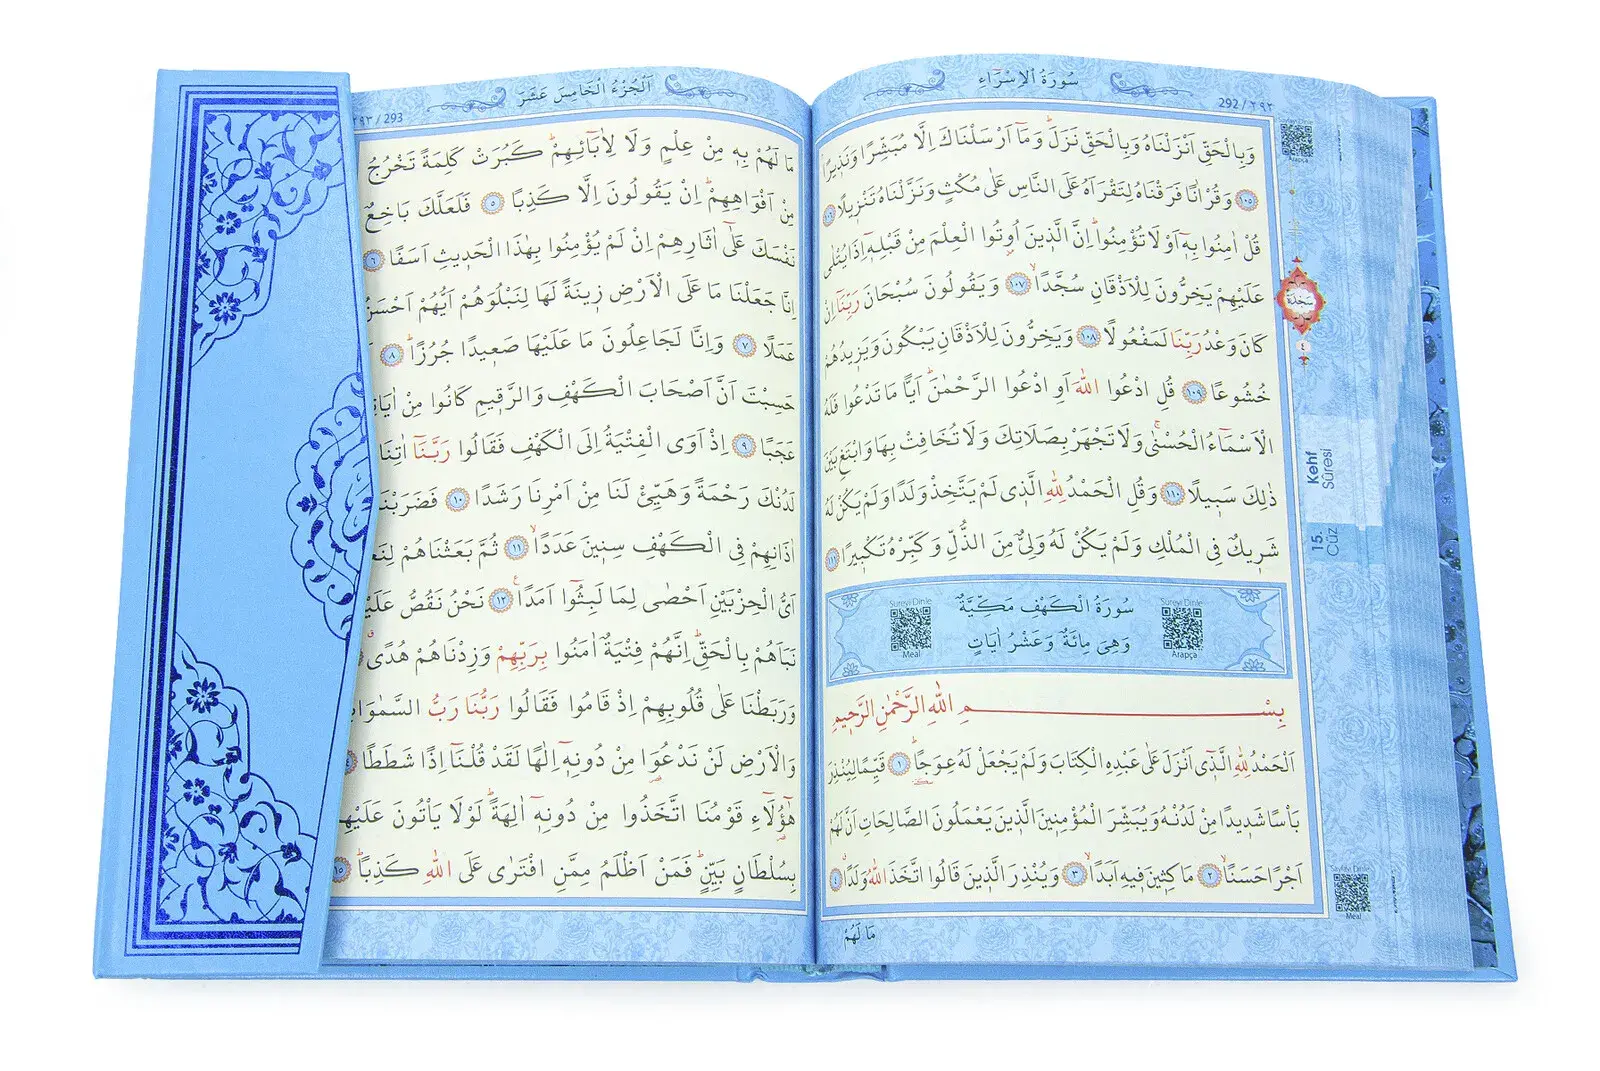 سُورَةُ الْاِسْرَاءِ
292 / ٢٩٢
Sayfayı Dinle
Arapça
وَبِالْحَقِّ اَنْزَلْنَاهُ وَبِالْحَقِّ نَزَلَۜ وَمَٓا اَرْسَلْنَاكَ اِلَّا مُبَشِّرًا وَنَذِيرًاۢ
﴿١٠٥﴾ وَقُرْاٰنًا فَرَقْنَاهُ لِتَقْرَاَهُ عَلَى النَّاسِ عَلٰى مُكْثٍ وَنَزَّلْنَاهُ تَنْزِيلًا ﴿١٠٦﴾
قُلْ اٰمِنُوا بِهٖٓ اَوْ لَا تُؤْمِنُواۜ اِنَّ الَّذِينَ اُو۫تُوا الْعِلْمَ مِنْ قَبْلِهٖٓ اِذَا يُتْلٰى
عَلَيْهِمْ يَخِرُّونَ لِلْاَذْقَانِ سُجَّدًاۙ ﴿١٠٧﴾ وَيَقُولُونَ سُبْحَانَ رَبِّنَٓا اِنْ
كَانَ وَعْدُ رَبِّنَا لَمَفْعُولًا ﴿١٠٨﴾ وَيَخِرُّونَ لِلْاَذْقَانِ يَبْكُونَ وَيَزِيدُهُمْ
خُشُوعًا ﴿١٠٩﴾ قُلِ ادْعُوا اللّٰهَ اَوِ ادْعُوا الرَّحْمٰنَۜ اَيًّا مَا تَدْعُوا فَلَهُ
الْاَسْمَٓاءُ الْحُسْنٰىۚ وَلَا تَجْهَرْ بِصَلَاتِكَ وَلَا تُخَافِتْ بِهَا وَابْتَغِ بَيْنَ
ذٰلِكَ سَبِيلًا ﴿١١٠﴾ وَقُلِ الْحَمْدُ لِلّٰهِ الَّذِى لَمْ يَتَّخِذْ وَلَدًا وَلَمْ يَكُنْ لَهُ
شَرِيكٌ فِى الْمُلْكِ وَلَمْ يَكُنْ لَهُ وَلِىٌّ مِنَ الذُّلِّ وَكَبِّرْهُ تَكْبِيرًا ﴿١١١﴾
سَجْدَة
٤
Kehf
Sûresi
15.
Cüz
Sureyi Dinle
Arapça
سُورَةُ الْكَهْفِ مَكِّيَّةٌ
وَهِىَ مِائَةٌ وَعَشْرُ اٰيَاتٍ
Sureyi Dinle
Meal
بِسْمِ اللّٰهِ الرَّحْمٰنِ الرَّحِيمِ
اَلْحَمْدُ لِلّٰهِ الَّذِٓى اَنْزَلَ عَلٰى عَبْدِهِ الْكِتَابَ وَلَمْ يَجْعَلْ لَهُ عِوَجًاۜ ﴿١﴾ قَيِّمًا لِيُنْذِرَ
بَاْسًا شَدِيدًا مِنْ لَدُنْهُ وَيُبَشِّرَ الْمُؤْمِنِينَ الَّذِينَ يَعْمَلُونَ الصَّالِحَاتِ اَنَّ لَهُمْ
اَجْرًا حَسَنًاۙ ﴿٢﴾ مَاكِثِينَ فِيهِ اَبَدًاۙ ﴿٣﴾ وَيُنْذِرَ الَّذِينَ قَالُوا اتَّخَذَ اللّٰهُ وَلَدًاۗ ﴿٤﴾
Sayfayı Dinle
Meal
مَا لَهُمْ
اَلْجُزْءُ الْخَامِسَ عَشَرَ
٢٩٣ / 293
مَا لَهُمْ بِهٖ مِنْ عِلْمٍ وَلَا لِاٰبَٓائِهِمْۜ كَبُرَتْ كَلِمَةً تَخْرُجُ
مِنْ اَفْوَاهِهِمْۜ اِنْ يَقُولُونَ اِلَّا كَذِبًا ﴿٥﴾ فَلَعَلَّكَ بَاخِعٌ
نَفْسَكَ عَلٰٓى اٰثَارِهِمْ اِنْ لَمْ يُؤْمِنُوا بِهٰذَا الْحَدِيثِ اَسَفًا ﴿٦﴾
اِنَّا جَعَلْنَا مَا عَلَى الْاَرْضِ زِينَةً لَهَا لِنَبْلُوَهُمْ اَيُّهُمْ اَحْسَنُ
عَمَلًا ﴿٧﴾ وَاِنَّا لَجَاعِلُونَ مَا عَلَيْهَا صَعِيدًا جُرُزًاۜ ﴿٨﴾
حَسِبْتَ اَنَّ اَصْحَابَ الْكَهْفِ وَالرَّقِيمِ كَانُوا مِنْ اٰيَاتِنَا
عَجَبًا ﴿٩﴾ اِذْ اَوَى الْفِتْيَةُ اِلَى الْكَهْفِ فَقَالُوا رَبَّنَٓا اٰتِنَا
لَدُنْكَ رَحْمَةً وَهَيِّئْ لَنَا مِنْ اَمْرِنَا رَشَدًا ﴿١٠﴾ فَضَرَبْنَا
اٰذَانِهِمْ فِى الْكَهْفِ سِنِينَ عَدَدًاۙ ﴿١١﴾ ثُمَّ بَعَثْنَاهُمْ لِنَعْ
اَىُّ الْحِزْبَيْنِ اَحْصٰى لِمَا لَبِثُٓوا اَمَدًا۟ ﴿١٢﴾ نَحْنُ نَقُصُّ عَلَيْ
نَبَاَهُمْ بِالْحَقِّۜ اِنَّهُمْ فِتْيَةٌ اٰمَنُوا بِرَبِّهِمْ وَزِدْنَاهُمْ هُدًىۗ
وَرَبَطْنَا عَلٰى قُلُوبِهِمْ اِذْ قَامُوا فَقَالُوا رَبُّنَا رَبُّ السَّمٰوَاتِ
وَالْاَرْضِ لَنْ نَدْعُوَ۬ا مِنْ دُونِهٖٓ اِلٰهًا لَقَدْ قُلْنَٓا اِذًا شَطَطًا ﴿١٤﴾
هٰٓؤُ۬لَٓاءِ قَوْمُنَا اتَّخَذُوا مِنْ دُونِهٖٓ اٰلِهَةًۜ لَوْلَا يَاْتُونَ عَلَيْهِمْ
بِسُلْطَانٍ بَيِّنٍۜ فَمَنْ اَظْلَمُ مِمَّنِ افْتَرٰى عَلَى اللّٰهِ كَذِبًاۜ ﴿١٥﴾